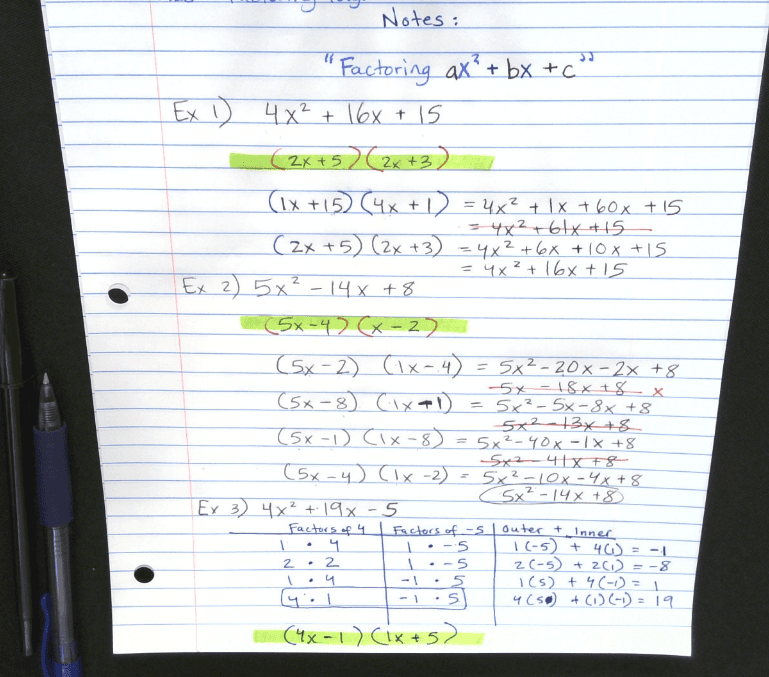 Notes :
"Factoring ax² + bx + c"
Ex 1) 4x² + 16x + 15
(2x+5)(2x+3)
(1x+15)(4x+1) = 4x² + 1x + 60x + 15
= 4x² + 61x + 15
(2x+5)(2x+3) = 4x² + 6x + 10x + 15
= 4x² + 16x + 15
Ex 2) 5x² - 14x + 8
(5x-4)(x-2)
(5x-2) (1x-4) = 5x² - 20x - 2x + 8
5x - 18x + 8 x
(5x-8) (1x-1) = 5x² - 5x - 8x + 8
5x² - 13x + 8
(5x-1) (1x-8) = 5x² - 40x - 1x + 8
5x² - 41x + 8
(5x-4) (1x-2) = 5x² - 10x - 4x + 8
5x² - 14x + 8
Ex 3) 4x² + 19x - 5
Factors of 4 Factors of -5 Outer + Inner
1 • 4 1 • -5 1(-5) + 4(1) = -1
2 • 2 1 • -5 2(-5) + 2(1) = -8
1 • 4 -1 • 5 1(5) + 4(-1) = 1
4 • 1 -1 • 5 4(5) + (1)(-1) = 19
(4x-1)(1x+5)